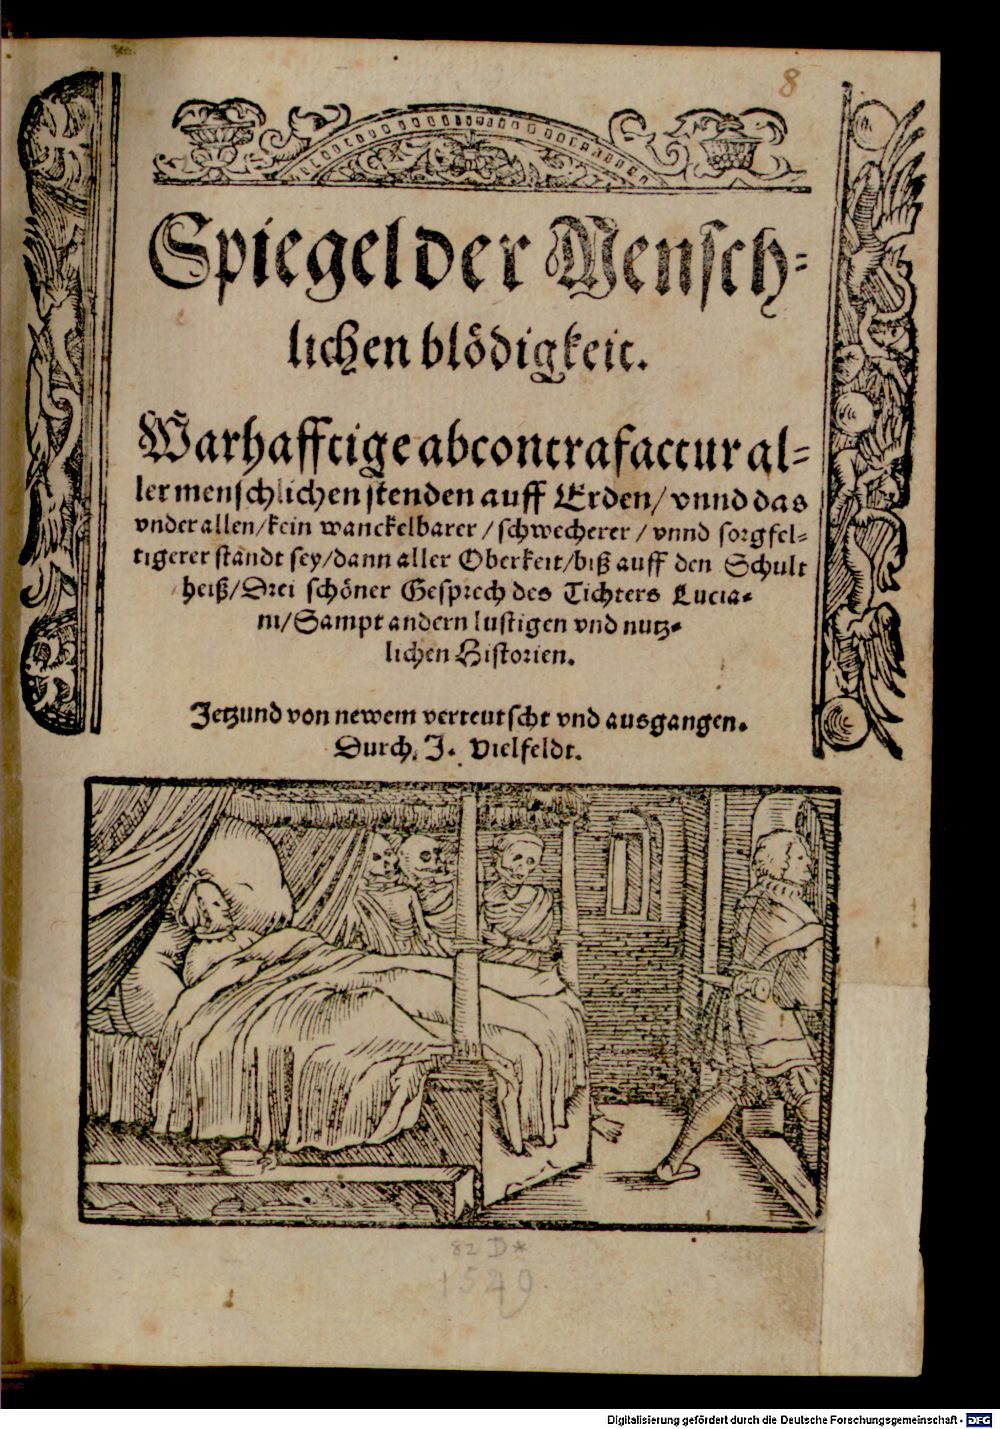 8
Spiegel der Mensch-
lichen blödigkeit.
Warhafftige abcontrafactur al-
ler menschlichen stenden auff Erden/ vnnd das
vnder allen/ kein wanckelbarer/ schwecherer/ vnnd sorgfel-
tigerer standt sey/ dann aller Oberkeit/ biß auff den Schult
heiß/ Drei schöner Gesprech des Tichters Lucia-
ni/ Sampt andern lustigen vnd nutz-
lichen Historien.
Jetzund von newem verteutscht vnd ausgangen.
Durch, J. Vielfeldt.
82 D*
1549.
Digitalisierung gefördert durch die Deutsche Forschungsgemeinschaft - DFG